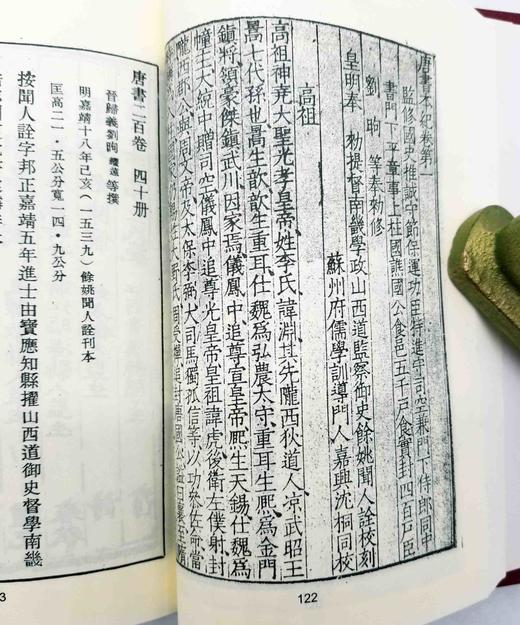 唐書本紀卷第一
監修國史推誠中節保運功臣特進守司空兼門下侍郎同中
書門下平章事上柱國譙國公食邑五千戶食實封四百戶臣
劉昫 等奉勑修
皇明奉 勑提督南畿學政山西道監察御史餘姚聞人詮校刻
蘇州府儒學訓導門人嘉興沈桐同校
高祖
高祖神堯大聖光孝皇帝、姓李氏、諱淵、其先隴西狄道人、凉武昭王
暠七代孫也、暠生歆、歆生重耳、仕魏爲弘農太守、重耳生熈、爲金門
鎮將、領豪傑鎮武川、因家焉、儀鳳中、追尊宣皇帝、熈生天錫、仕魏爲
幢主、大統中贈司空、儀鳳中追尊光皇帝、皇祖諱虎、後衛左僕射、封
隴西郡公、與周文帝及太保李弼大司馬獨孤信等以功參佐命、當
氏周受禪追封唐國公
122
唐書二百卷 四十册
晉歸義劉昫 等撰
明嘉靖十八年己亥（一五三九）餘姚聞人詮刊本
匡高二一·五公分寬一四·九公分
按聞人詮字邦正嘉靖五年進士由寶應知縣擢山西道御史督學南畿
3